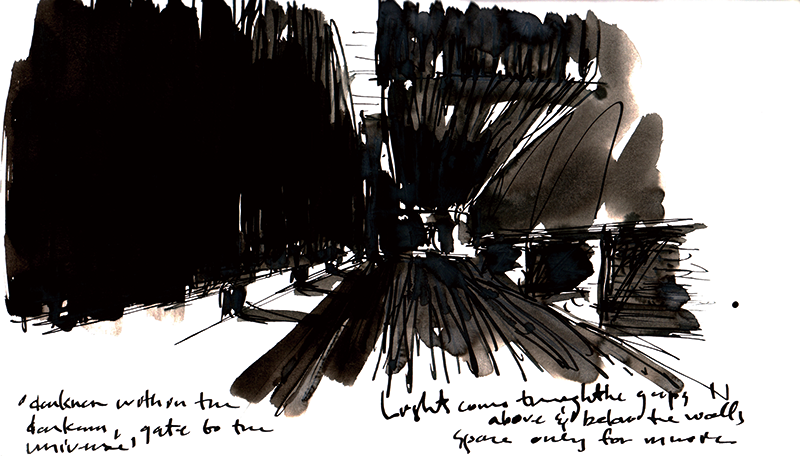 darkness within the
darkness, gate to the
universe,
Light comes through the gaps N
above & below the walls
Space only for